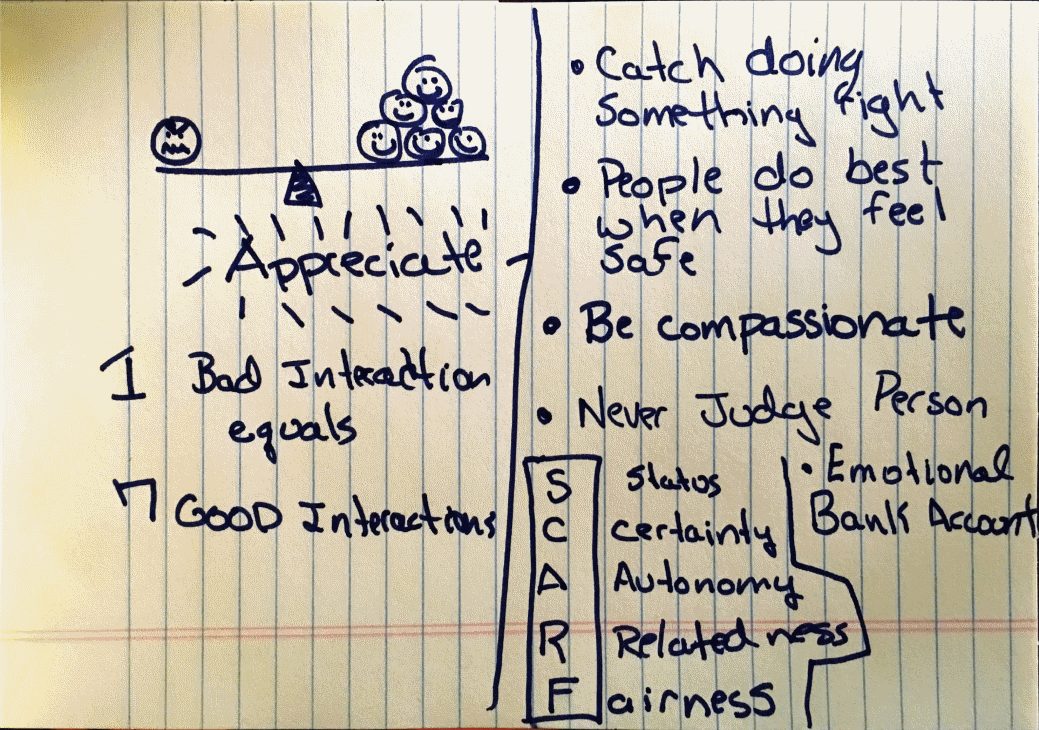 Appreciate
1 Bad Interaction
equals
7 GOOD Interactions
• Catch doing
something right
• People do best
when they feel
safe
• Be compassionate
• Never Judge Person
S Status
C Certainty
A Autonomy
R Relatedness
F airness
• Emotional
Bank Account